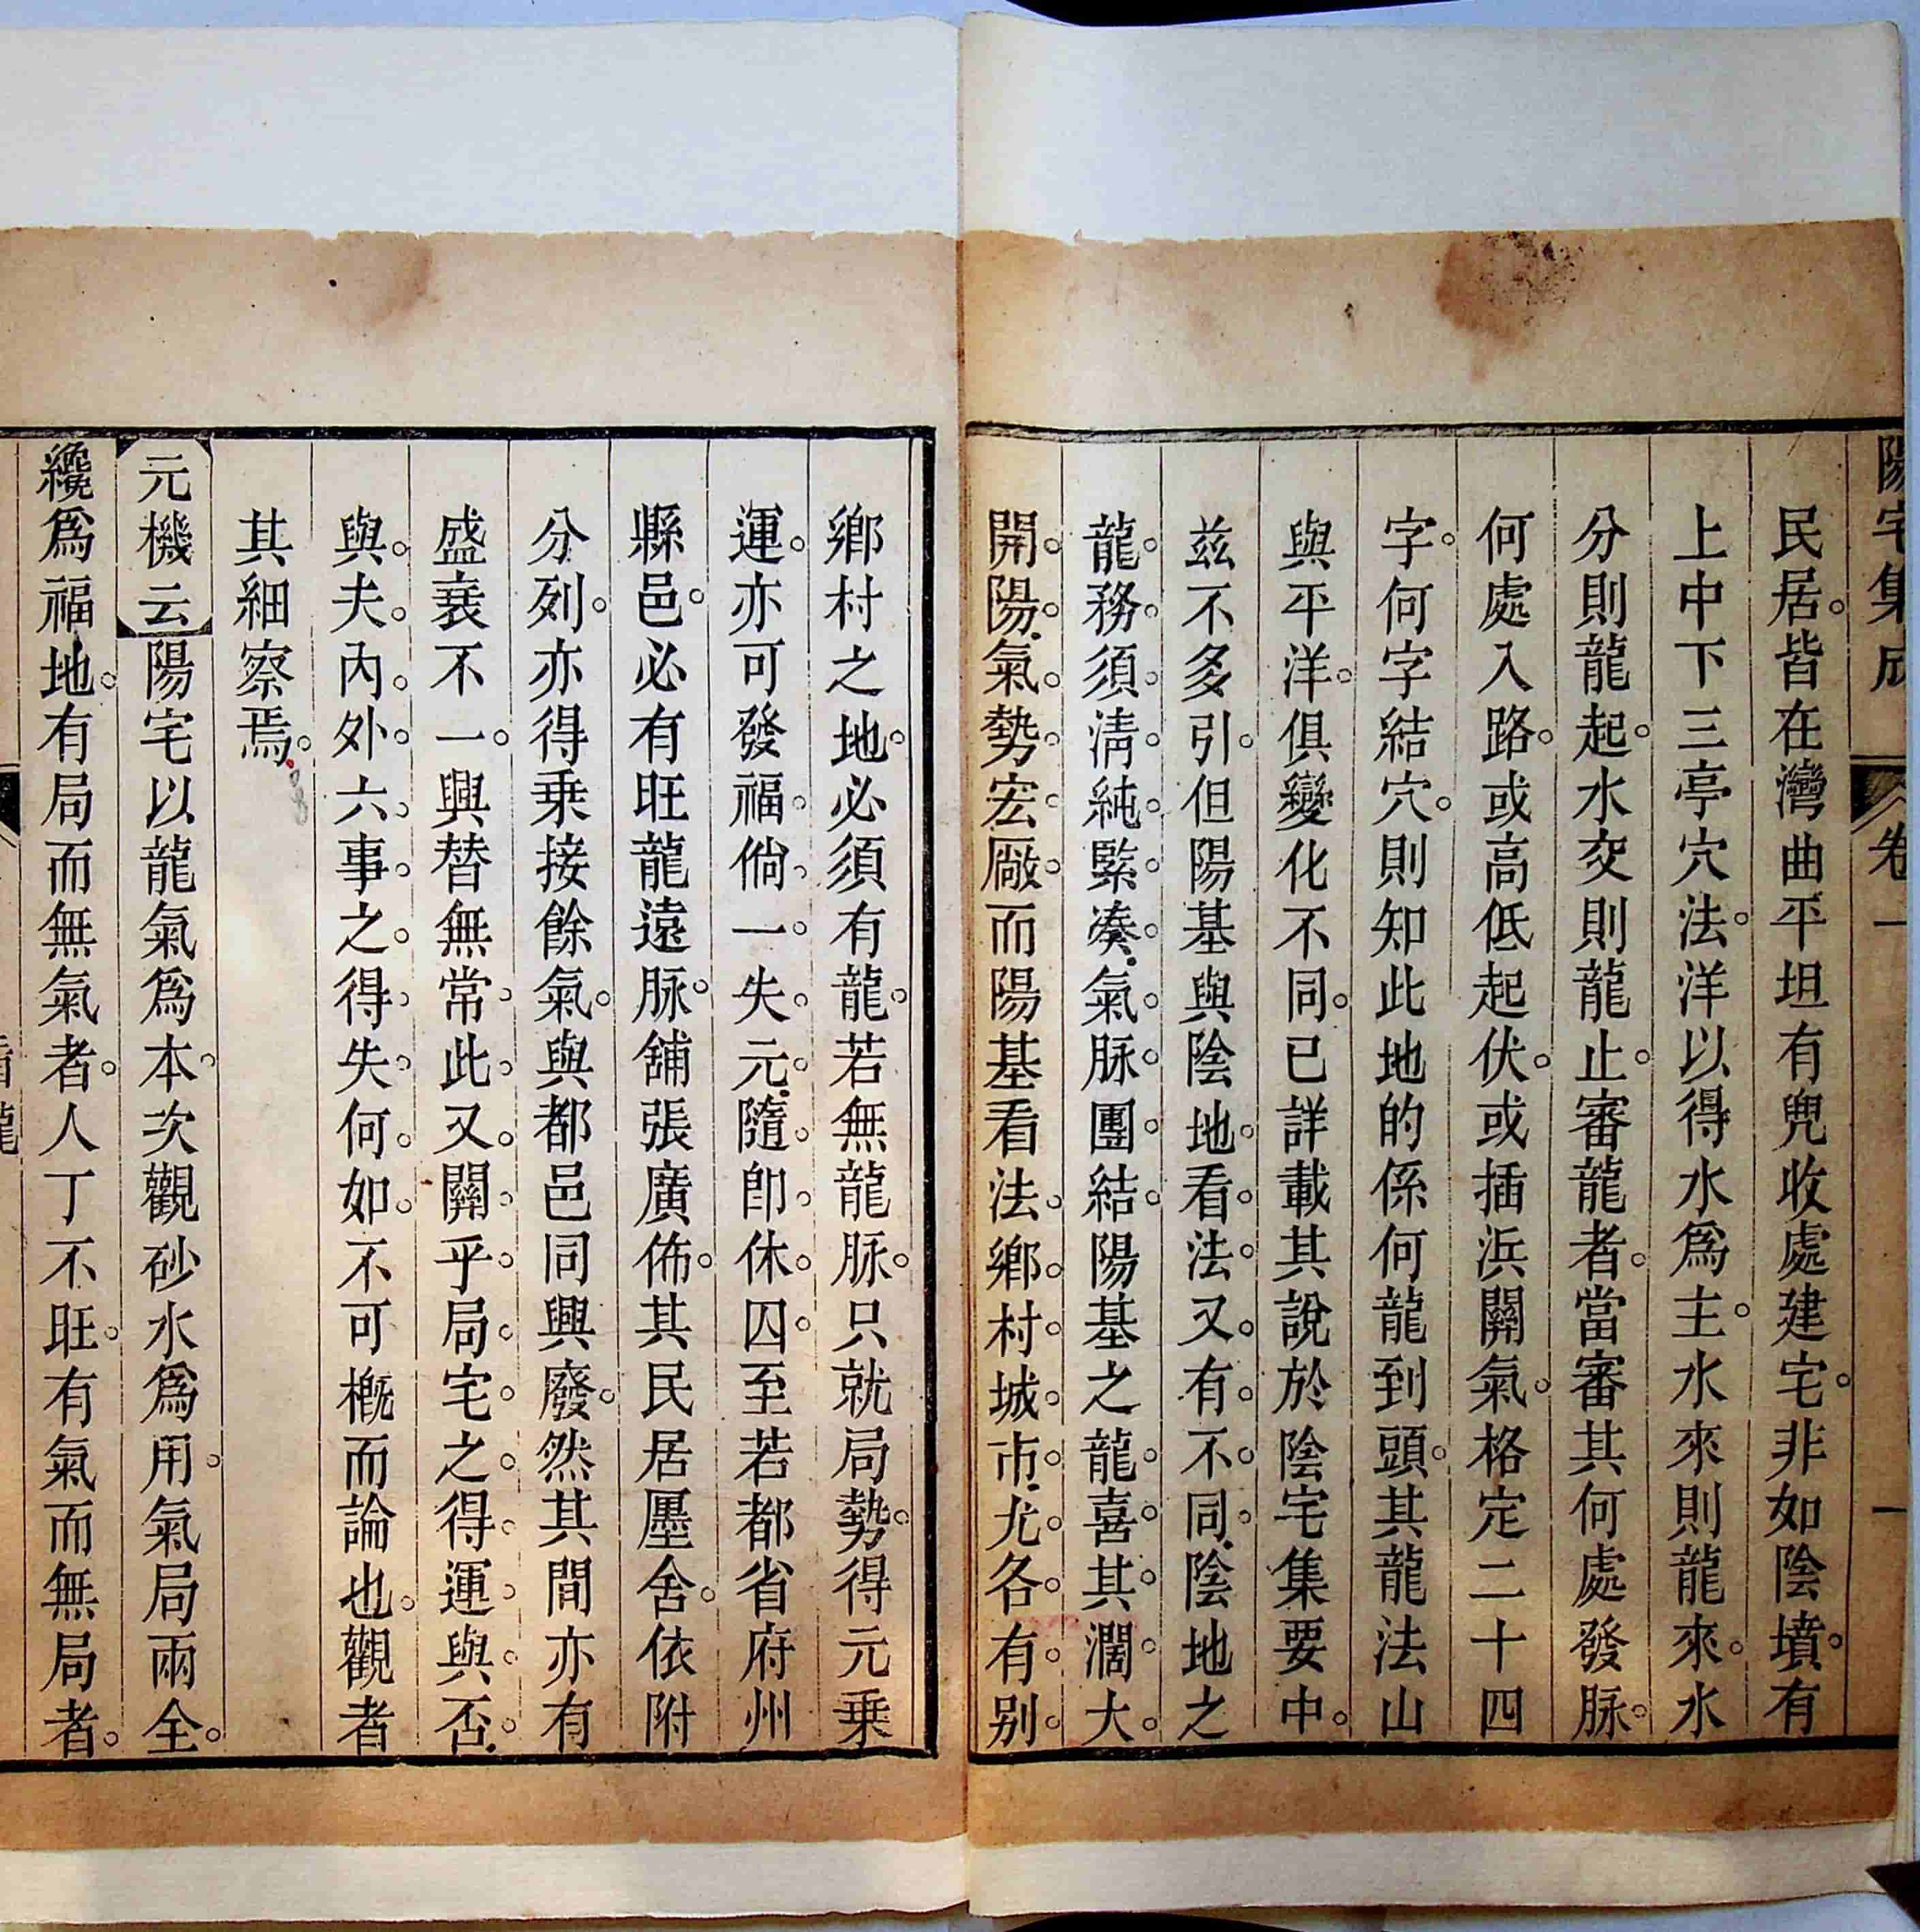 陽宅集成
卷一
一
民居。皆在灣曲平坦有兜收處建宅。非如陰墳。有
上中下三亭穴法。洋以得水為主。水來則龍來。水
分則龍起。水交則龍止。審龍者。當審其何處發脉。
何處入路。或高低起伏。或插浜關氣。格定二十四
字。何字結穴。則知此地的係何龍到頭。其龍法山
與平洋。俱變化不同。已詳載其說於陰宅集要中。
茲不多引。但陽基與陰地。看。法。又。有。不。同。陰地之
龍。務。須。清。純。緊。湊。氣。脉。團。結。陽基之龍。喜。其。濶。大。
開。陽。氣。勢。宏。厰。而陽基看法。鄉。村。城。市。尤。各。有。别。
鄉村之地。必須有龍。若無龍脉。只就局勢。得元乗
運。亦可發福。倘。一。失。元。隨。卽。休。囚。至若都省府州
縣邑。必有旺龍遠脉。舖張廣佈。其民居㕓舍。依附
分列。亦得乗接餘氣。與都邑同興廢。然其間亦有
盛衰不一。興替無常。此。又。關。乎。局。宅。之。得。運。與。否。
與。夫。內。外。六。事。之。得。失。何。如。不可槪而論也。觀者
其細察焉。
元機云陽宅以龍氣爲本。次觀砂水爲用。氣局兩全。
纔爲福地。有局而無氣者。人丁不旺。有氣而無局者。
龍